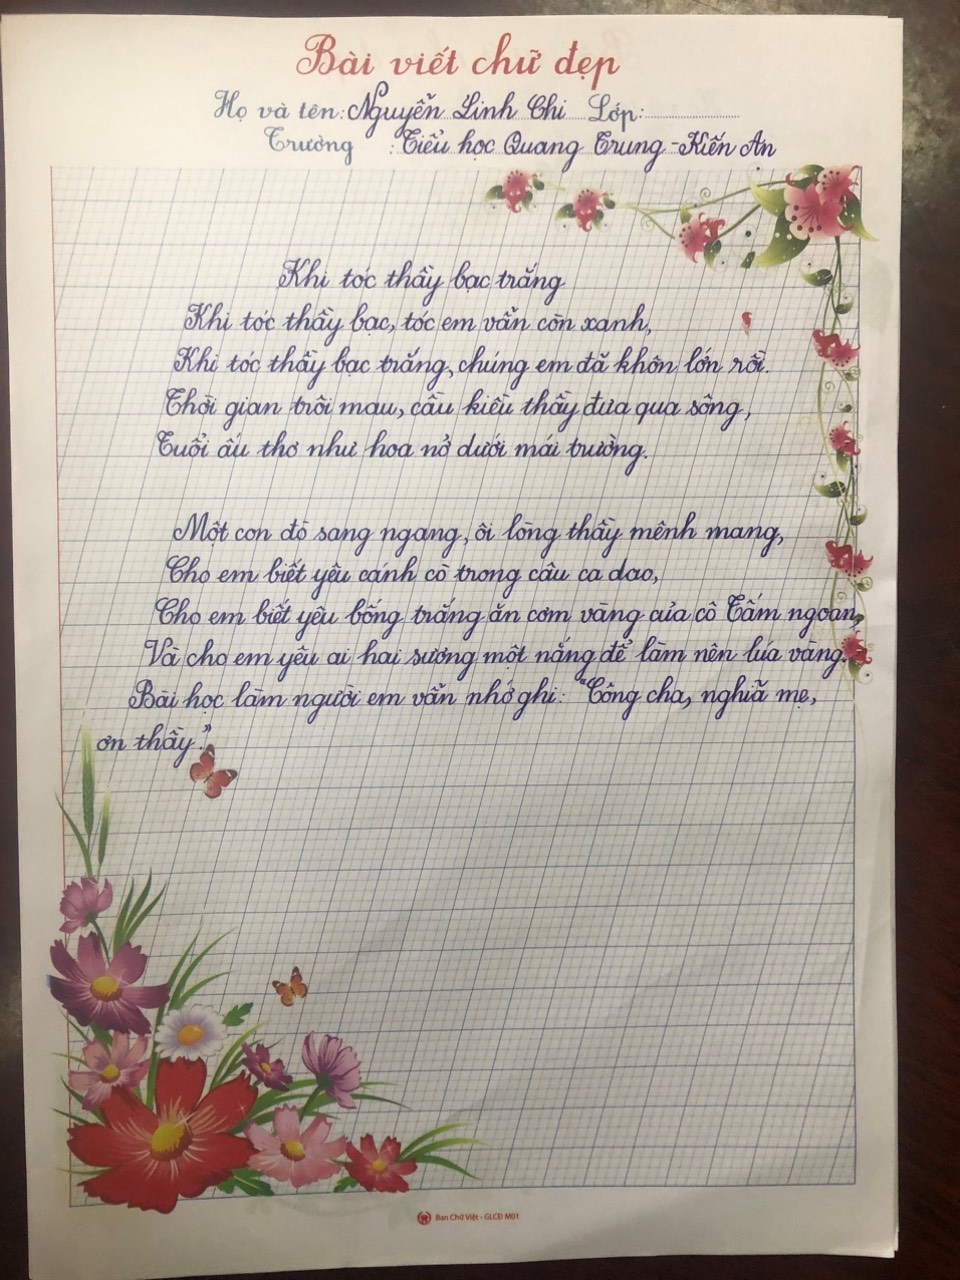 Bài viết chữ đẹp
Họ và tên: Nguyễn Linh Chi Lớp:
Trường : Tiểu học Quang Trung - Kiến An
Khi tóc thầy bạc trắng
Khi tóc thầy bạc, tóc em vẫn còn xanh,
Khi tóc thầy bạc trắng, chúng em đã khôn lớn rồi.
Thời gian trôi mau, cầu kiều thầy đưa qua sông,
Tuổi ấu thơ như hoa nở dưới mái trường.
Một con đò sang ngang, ôi lòng thầy mênh mang,
Cho em biết yêu cánh cò trong câu ca dao,
Cho em biết yêu bống trắng ăn cơm vàng của cô Tấm ngoan,
Và cho em yêu ai hai sương một nắng để làm nên lúa vàng.
Bài học làm người em vẫn nhớ ghi: "Công cha, nghĩa mẹ,
ơn thầy."
Ban Chữ Việt - GLCĐ M01